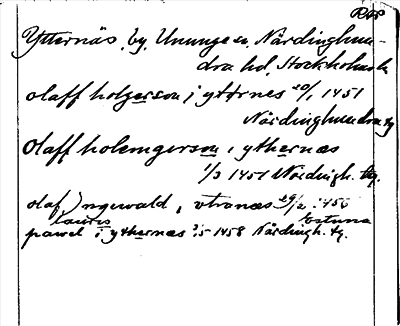 Ytternäs, by, Ununge sn, Närdinghun-
dra hd, Stockholms l.
olaff holgerson i yttrnes 20/1 1451
Närdinghundra tg
Olaff holemgerson i ythernæs
1/3 1451 Nærdingh. tg.
olaf Jngewald, vtranæs 29/2 1456
lauris Estuna
pawel i ythernæs 3/5 1458 Närdingh. tg.